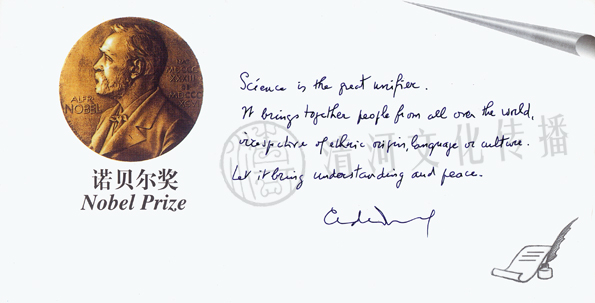 ALFR.
NOBEL
诺贝尔奖
Nobel Prize
Science is the great unifier.
It brings together people from all over the world,
irrespective of ethnic origin, language or culture.
Let it bring understanding and peace.
清河文化传播